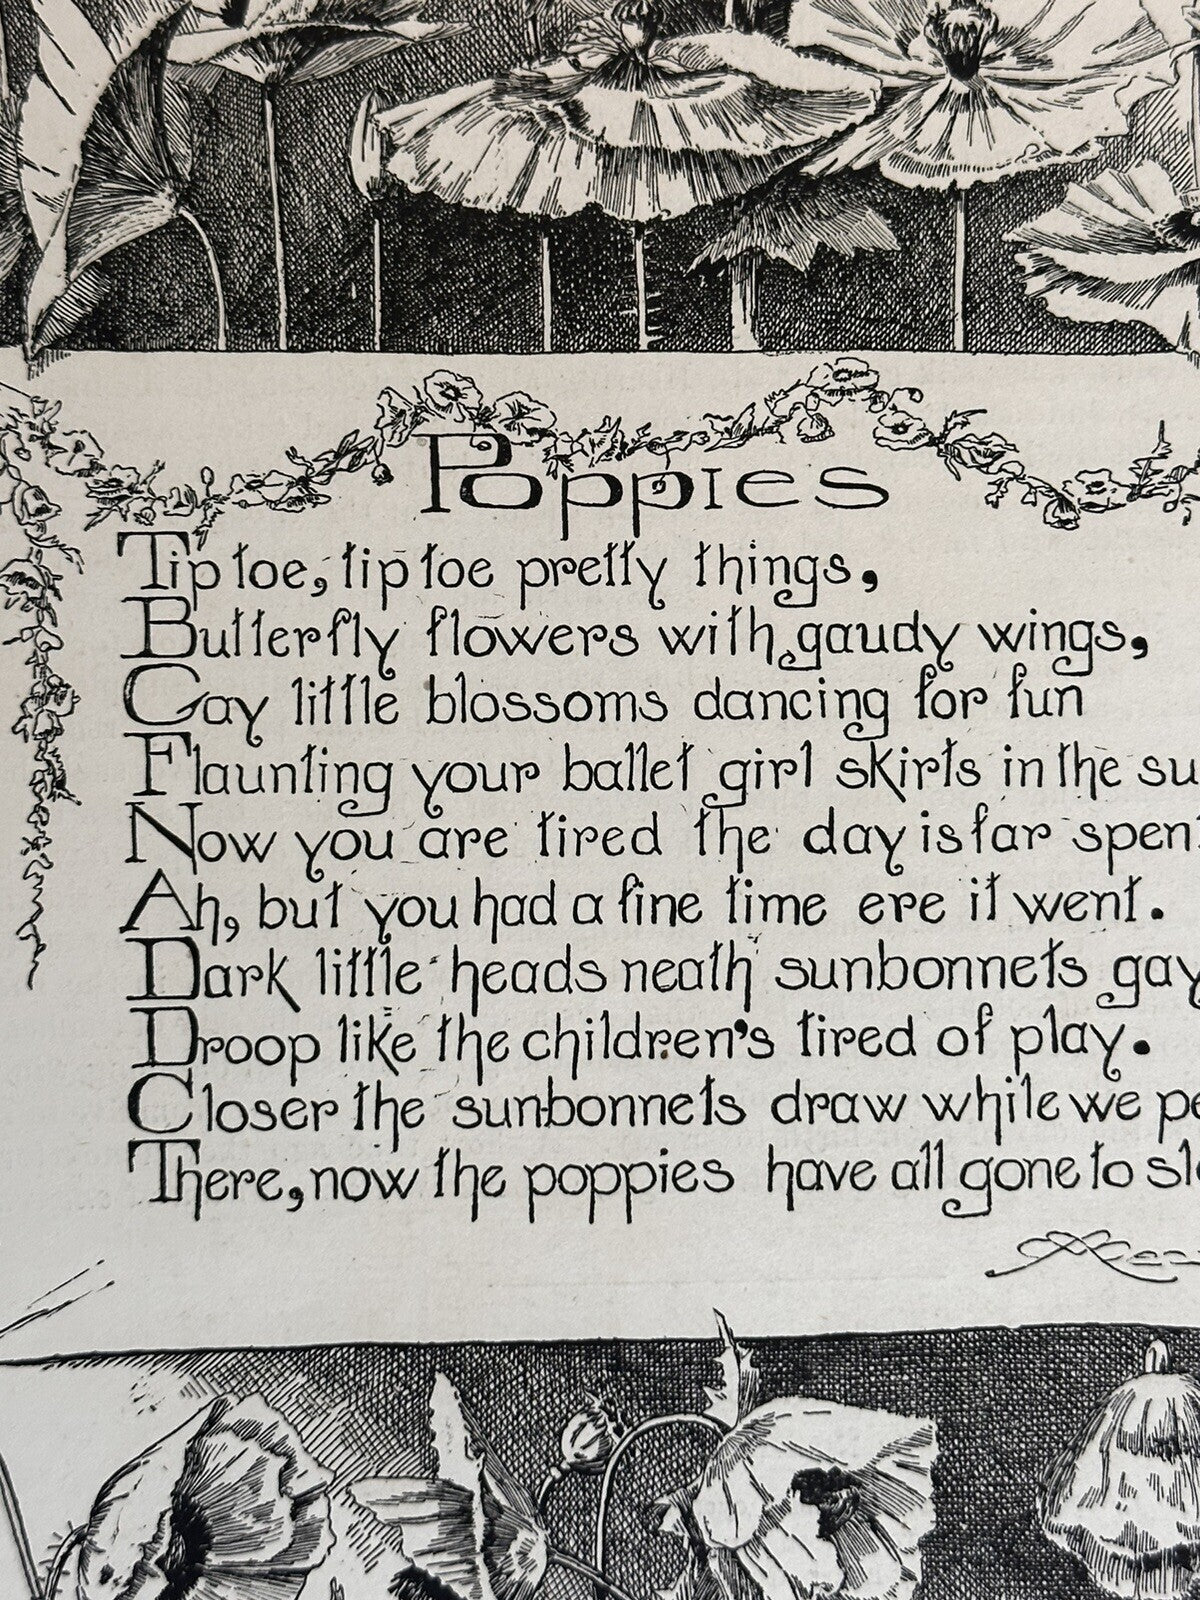 Poppies
Tip toe, tip toe pretty things,
Butterfly flowers with gaudy wings,
Gay little blossoms dancing for fun
Flaunting your ballet girl skirts in the su
Now you are tired the day is far spen
Ah, but you had a fine time ere it went.
Dark little heads neath sunbonnets gay
Droop like the children's tired of play.
Closer the sunbonnets draw while we pe
There, now the poppies have all gone to sl